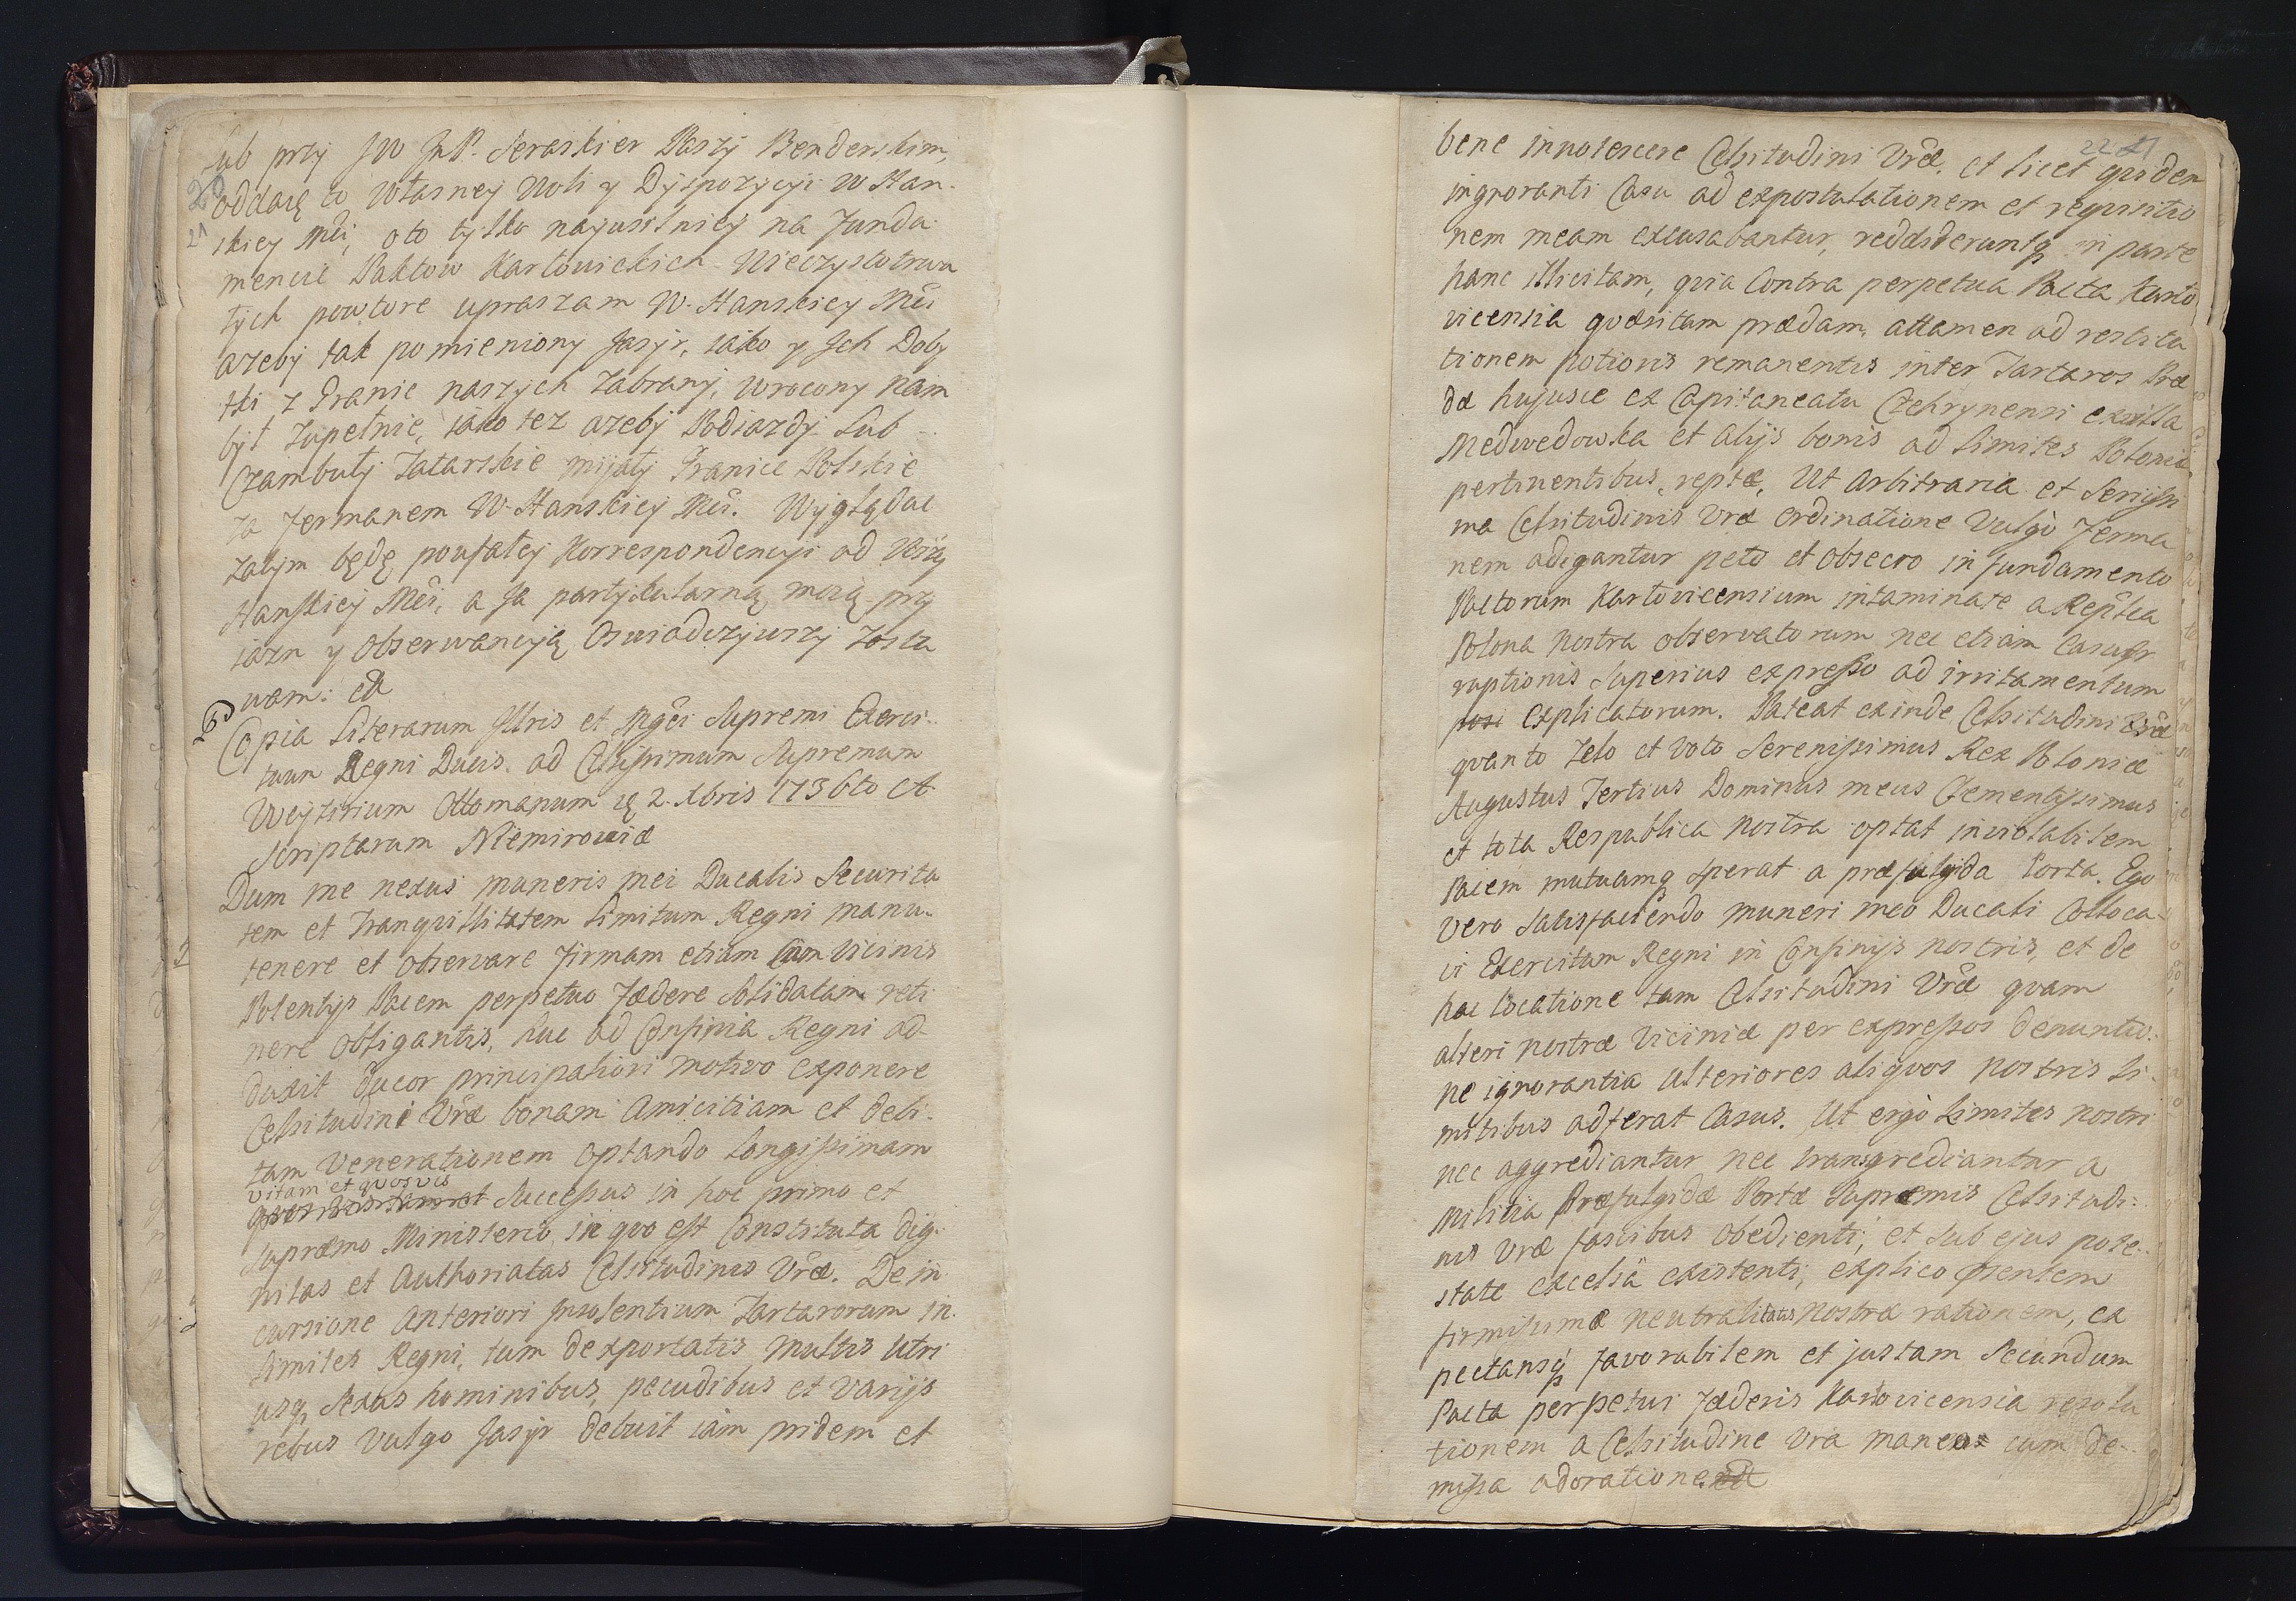 lub przy JW JmP. Seraskier Baszy Benderskim,
oddaię to własney woli y Dyspozycyi W Han-
skiey Mći, oto tylko nayusilniey na funda-
mencie Paktow Karłowickich Wieczystotrwa
łych powtore upraszam W. Hanskiey Mći
ażeby tak pomieniony Jasyr, iako y Jch Doby
tki z Granic naszych zabrany, wrocony nam
był zupełnie, iako tez azeby Podiazdy lub
Czambuły Tatarskie mijały Granice Polskie
za Fermanem W. Hanskiey Mći. Wyglądac
zatym będę poufałey Korrespondencyi od Wszy
Hanskiey Mći, a Ja partykularną moią przy
iazn y Obserwancyią Oswiadczywszy zosta
wam: etc
Copia Literarum Jllris et Mgci Supremi Exerci-
tuum Regni Ducis ad Celsissimum Supremum
Weytirium Ottomanum 2. Xbris 1736to
Scriptarum Niemiroviæ
Dum me nexus muneris mei Ducalis Securita
tem et tranquillitatem Limitum Regni manu-
tenere et observare firmam etiam cum vicinis
Potentijs Pacem perpetuo fædere solidatam reti
nere obligantis, huc ad Confinia Regni ad-
duxit ducor principaliori motivo exponere
Celsitudini Vræ bonam Amicitiam et debi-
tam Venerationem optando longissimam
vitam et quosvis
Successus in hoc primo et
supræmo Ministerio, in quo est Constituta dig-
nitas et Authoriatas Celsitudinis Vræ. De in
cursione anteriori Insolentium Tartarorum in
limites Regni, tum de exportatis multis utri
usq sexus hominibus, pecudibus et varijs
rebus vulgo Jasyr debuit iam pridem et
22 21
bene innotescere Celsitudini Vræ. et licet quidem
ingnoranti Casu ad expostulationem et requisitio
nem meam excusabantur, reddideruntq in parte
hanc illicitam, quia Contra perpetua Pacta Karlo
vicensia quæsitam prædam, attamen ad restitu
tionem potioris remanentis inter Tartaros Præ
dæ hujusce ex Capitaneatu Czehrynensi exvilla
Medwedowka et alijs bonis ad limites Poloniæ
pertinentibus, reptæ, Ut Arbitraria et Serijssi
ma Celsitudinis Vræ ordinatione Vulgò Ferma
nem adigantur peto et obsecro in fundamento
Pactorum Karlovicensium intaminate a Replca
Polona nostra observatorum nec etiam Casu
ruptionis superius expresso ad irritamentum
explicatorum. Pateat exinde Celsitudini Vræ
quanto Zelo et Voto Serenissimus Rex Poloniæ
Augustus Tertius Dominus meus Clementissimus
et tota Respublica nostra optat inviolabilem
Pacem mutuamq sperat a præfulgida Porta. Ego
vero Satisfaciendo muneri meo Ducali Colloca-
vi Exercitum Regni in Confinijs nostris, et de
hac locatione tam Celsitudini Vræ quam
alteri nostræ Viciniæ per expressos denuntio:
ne ignorantia ulteriores aliquos nostris li-
mitibus adferat Casus. Ut ergò Limites nostri
nec aggrediantur nec transgrediantur a
Militia Præfulgidæ Portæ Supræmis Celsitudi-
nis Vræ fascibus obedienti, et sub ejus pote-
state excelsâ existenti, explico præsentem
firmissimæ neutralitatis nostræ rationem, ex
pectansq favorabilem et justam Secundum
Pacta perpetui fæderis Karlovicensia resolu
tionem a Celsitudine Vra maneo cum de-
missa adoratione